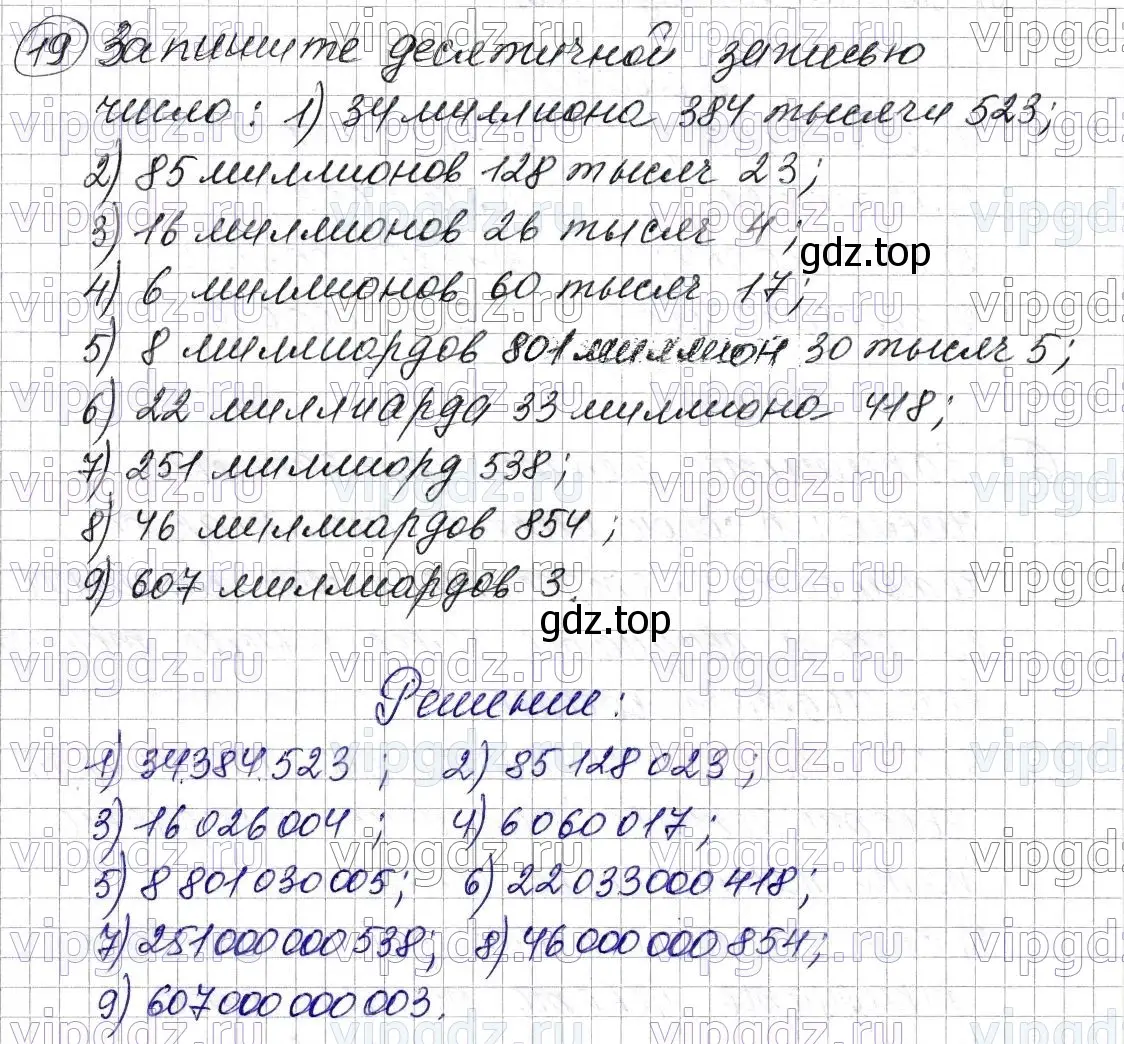 19 Запишите десятичной записью
число: 1) 34 миллиона 384 тысячи 523;
2) 85 миллионов 128 тысяч 23;
3) 16 миллионов 26 тысяч 4;
gdz.top
4) 6 миллионов 60 тысяч 17;
5) 8 миллиардов 801 миллион 30 тысяч 5;
6) 22 миллиарда 33 миллиона 418;
7) 251 миллиард 538;
8) 46 миллиардов 854;
9) 607 миллиардов 3.
gdz.top
Решение:
1) 34 384 523; 2) 85 128 023;
3) 16 026 004; 4) 6 060 017;
5) 8 801 030 005; 6) 22 033 000 418;
7) 251 000 000 538; 8) 46 000 000 854;
9) 607 000 000 003.
vipgdz.ru